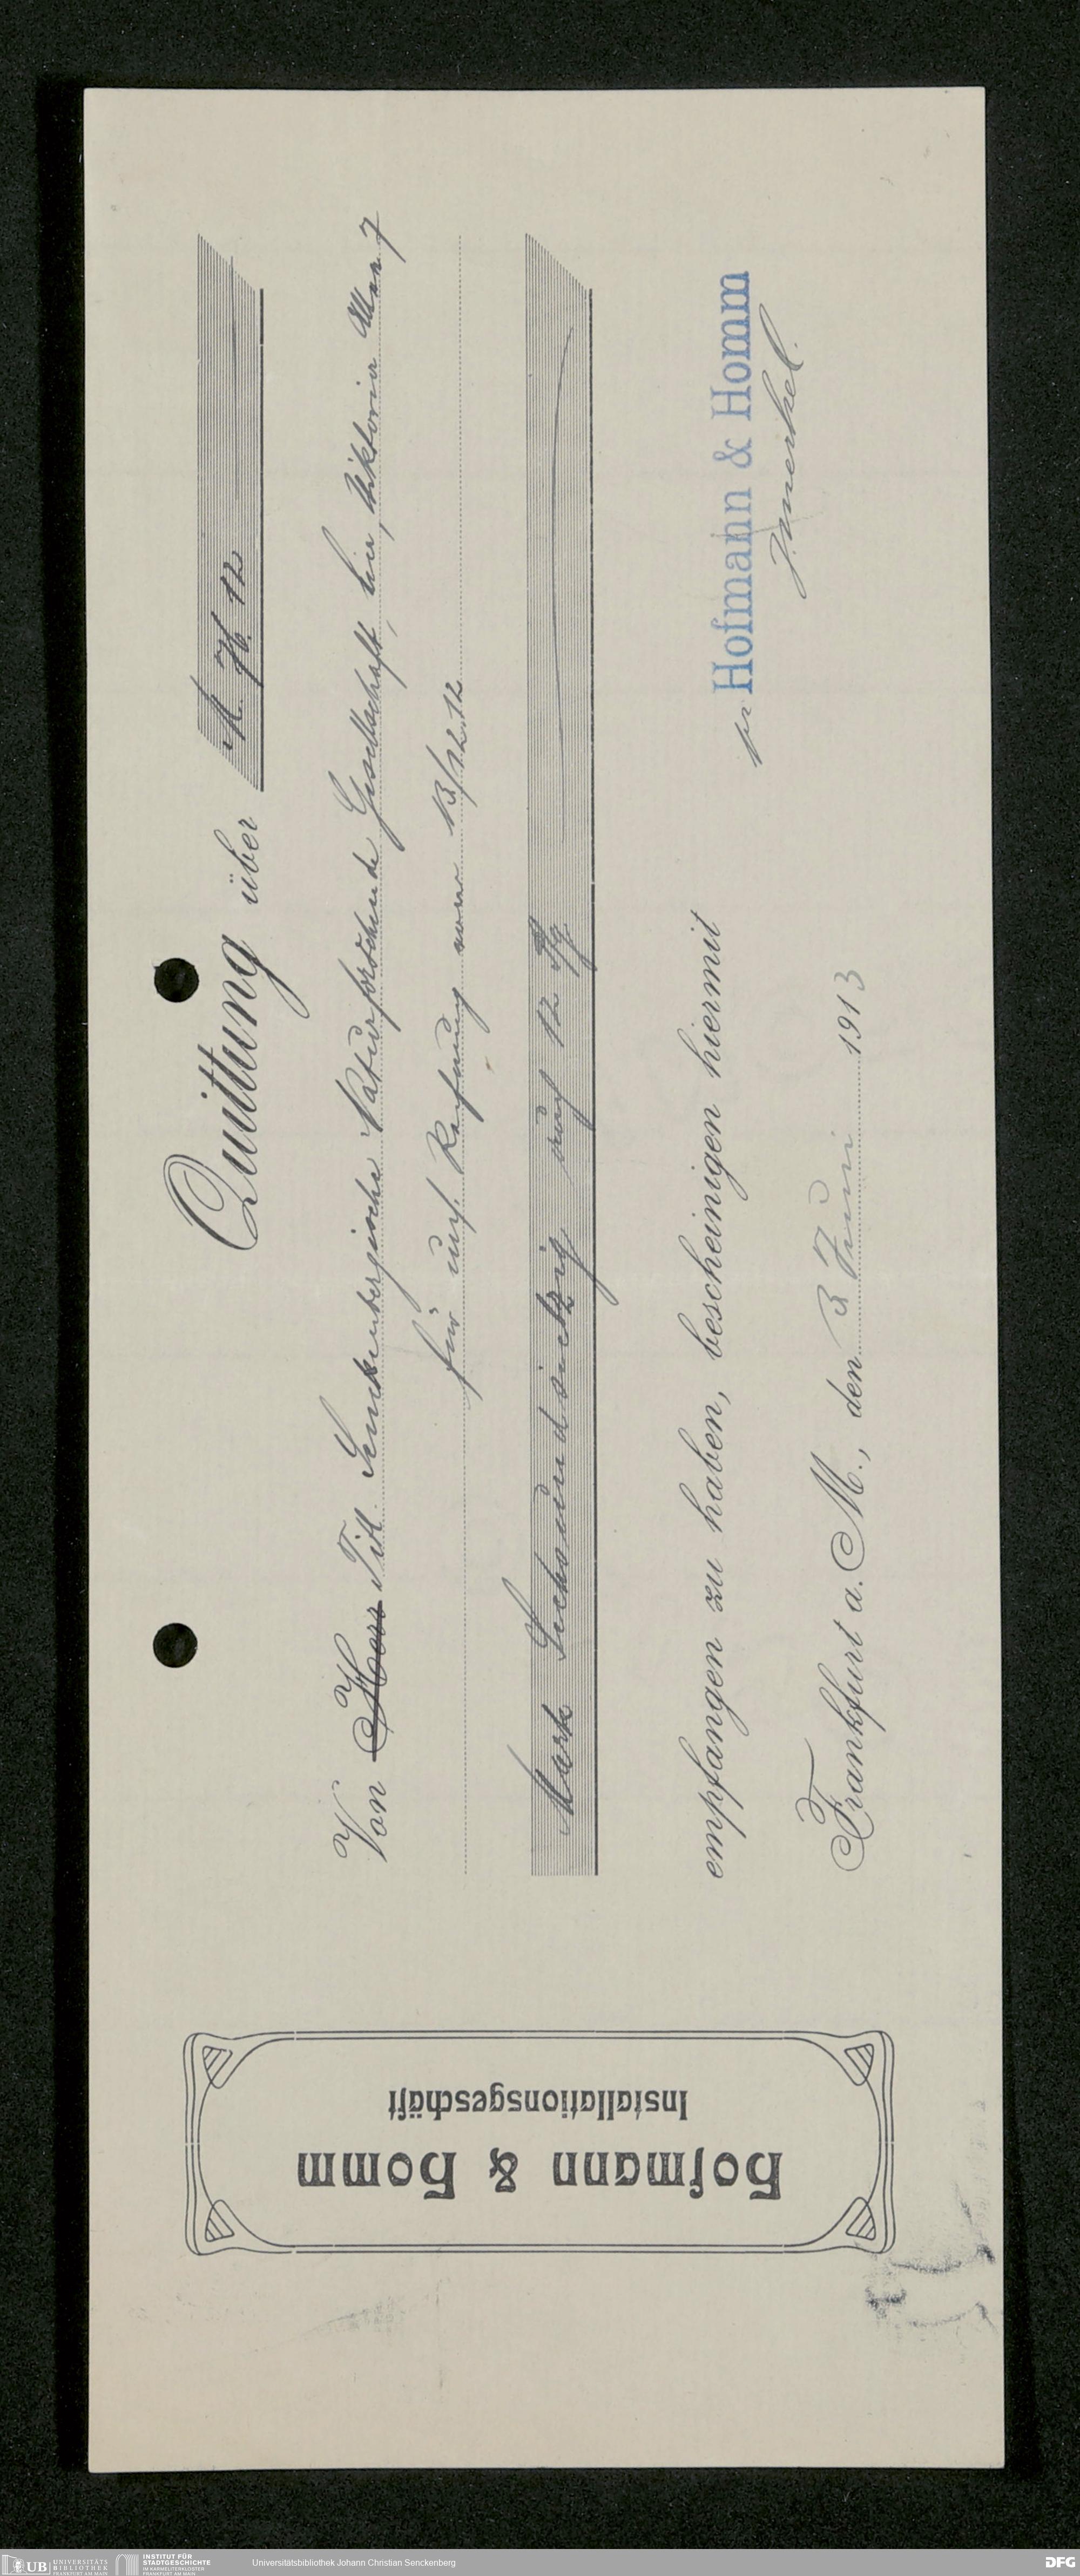 Hofmann & Homm
Installationsgeschäft
Quittung über M. 76.12
Von Herrn Titl. Senckenbergische Naturforschende Gesellschaft, hier, Viktoria Allee 7
für uns. Rechnung vom 13/12.12
Mark Sechsundsiebzig auch 12 Pfg
empfangen zu haben, bescheinigen hiermit
pr Hofmann & Homm
Frankfurt a. M., den 3 Juni 1913
UB UNIVERSITÄTS BIBLIOTHEK FRANKFURT AM MAIN
INSTITUT FÜR STADTGESCHICHTE IM KARMELITERKLOSTER FRANKFURT AM MAIN
Universitätsbibliothek Johann Christian Senckenberg
DFG